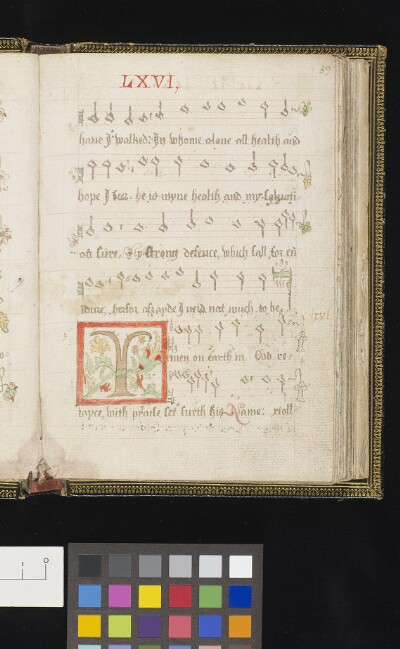 LXVI,
haue I walked: In whome alone all health and
hope I he is myne health and my saluati
on sure, My strong defence, which shall for eü
dure, herfor afrayde I neid not much to be,
lxvi
Y
men on earth in God re-
ioyce, with praise set furth his Name: extoll